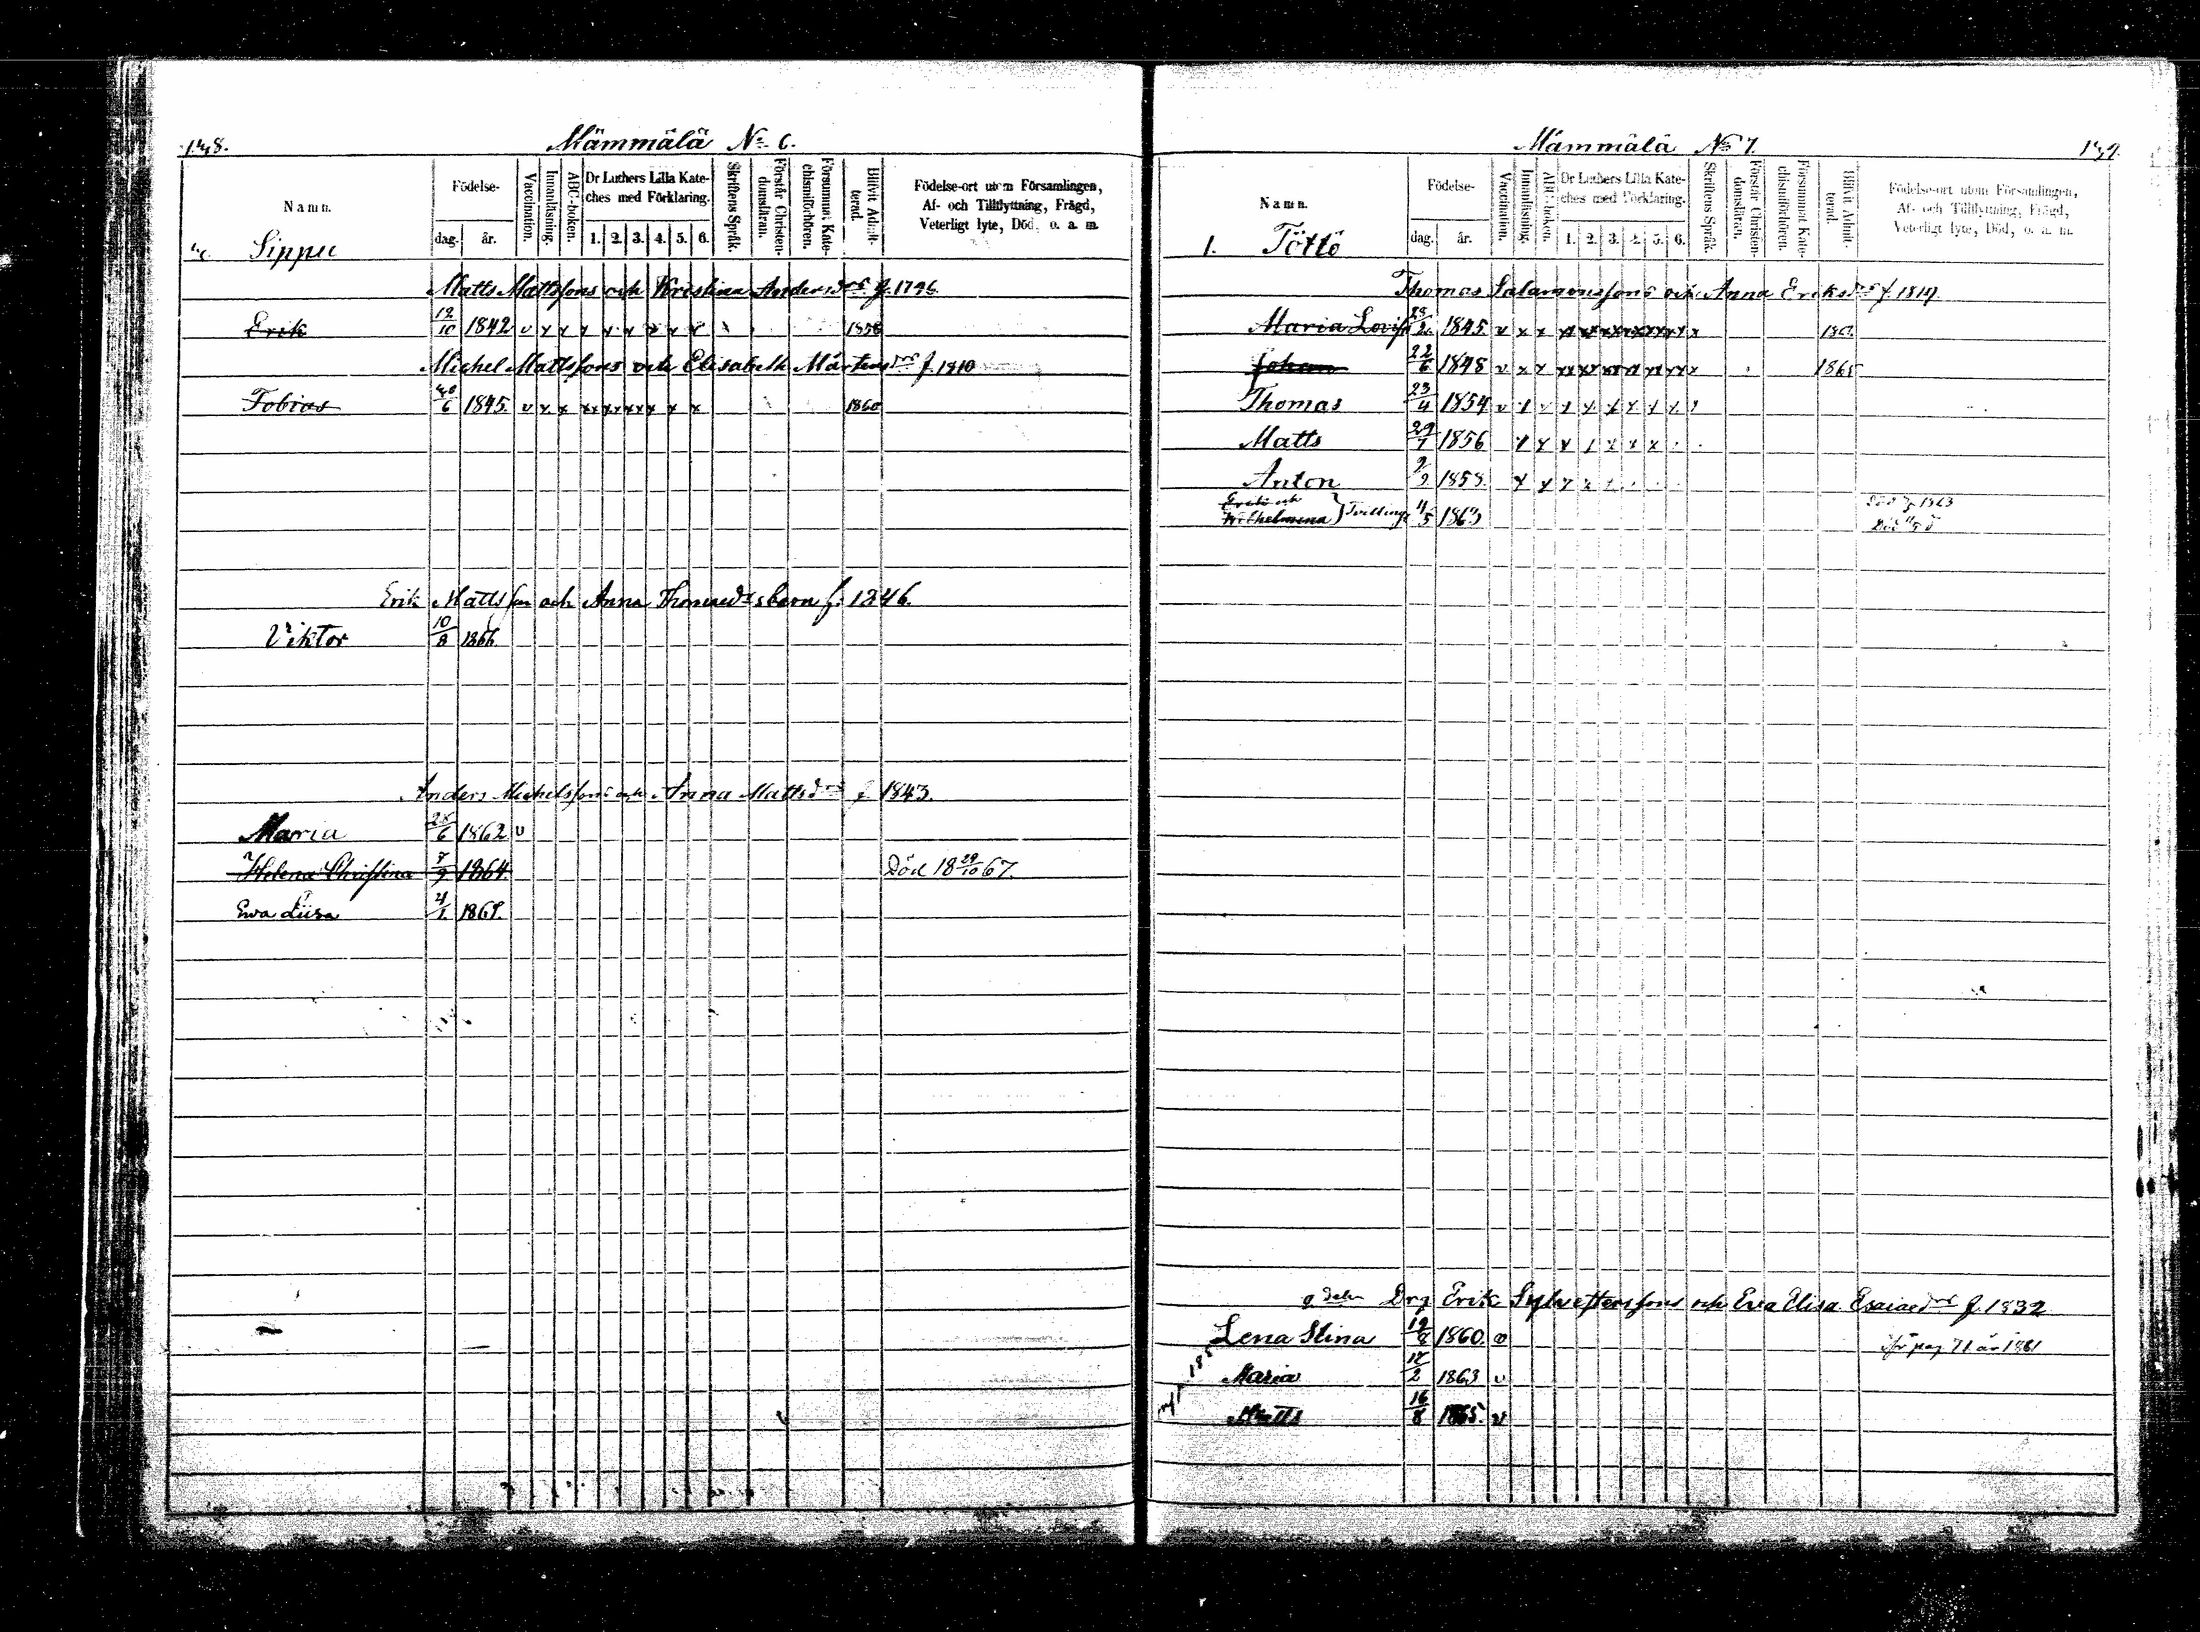 148.
Mämmälä No 6.
Namn.
Födelse-
dag.
år.
Vaccination.
Innanläsning.
ABC-boken.
Dr Luthers Lilla Kate-
ches med Förklaring.
1. 2. 3. 4. 5. 6.
Skriftens Språk.
Förstår Christen-
domsläran.
Försummat Kate-
chismiförhören.
Blifvit Admit-
terad.
Födelse-ort utom Församlingen,
Af- och Tillflyttning, Frägd,
Veterligt lyte, Död, o. a. m.
Sippu
Matts Mattssons och Kristina Andersdrs f. 1796.
Erik 12/10 1842 v x x x x x x x x 1858
Michel Mattssons och Elisabeth Mårtensdrs f. 1810
Tobias 6 1845. v x x xx xx xx x x x 1860
Erik Mattsson och Anna Thomasdrs barn f. 1846.
Viktor 10/8 1866.
Anders Michelssons och Anna Mattsdrs f. 1843.
Maria 28/6 1862 v
Helena Christina 7/9 1864. Död 18 29/10 67.
Ewa Liisa 4/1 1869.
Mämmälä No 7.
149.
Namn.
Födelse-
dag.
år.
Vaccination.
Innanläsning.
ABC-boken.
Dr Luthers Lilla Kate-
ches med Förklaring.
1. 2. 3. 4. 5. 6.
Skriftens Språk.
Förstår Christen-
domsläran.
Försummat Kate-
chismiförhören.
Blifvit Admit-
terad.
Födelse-ort utom Församlingen,
Af- och Tillflyttning, Frägd,
Veterligt lyte, Död, o. a. m.
1. Töttö
Thomas Salamonssons och Anna Eriksdrs f. 1819.
Maria Lovisa 1845. v x x xx xx xx xx xx xx x
Johan 22/6 1848 v x x xx xx xx xx xx xx x 1865
Thomas 23/4 1854 v x v x x x x x x
Matts 29/1 1856 x x x x x x x
Anton 2/9 1858. x x x x
Wilhelmina } Tvilling. 11/5 1863
Död 1863
Död 11/5
Drg Erik Sylvesterssons och Eva Elisa Esaiaedrs f. 1832
Lena Stina 19/8 1860.
ifr. pag 71 år 1861
Maria 17/2 1863 v
Matts 16/8 1865. v